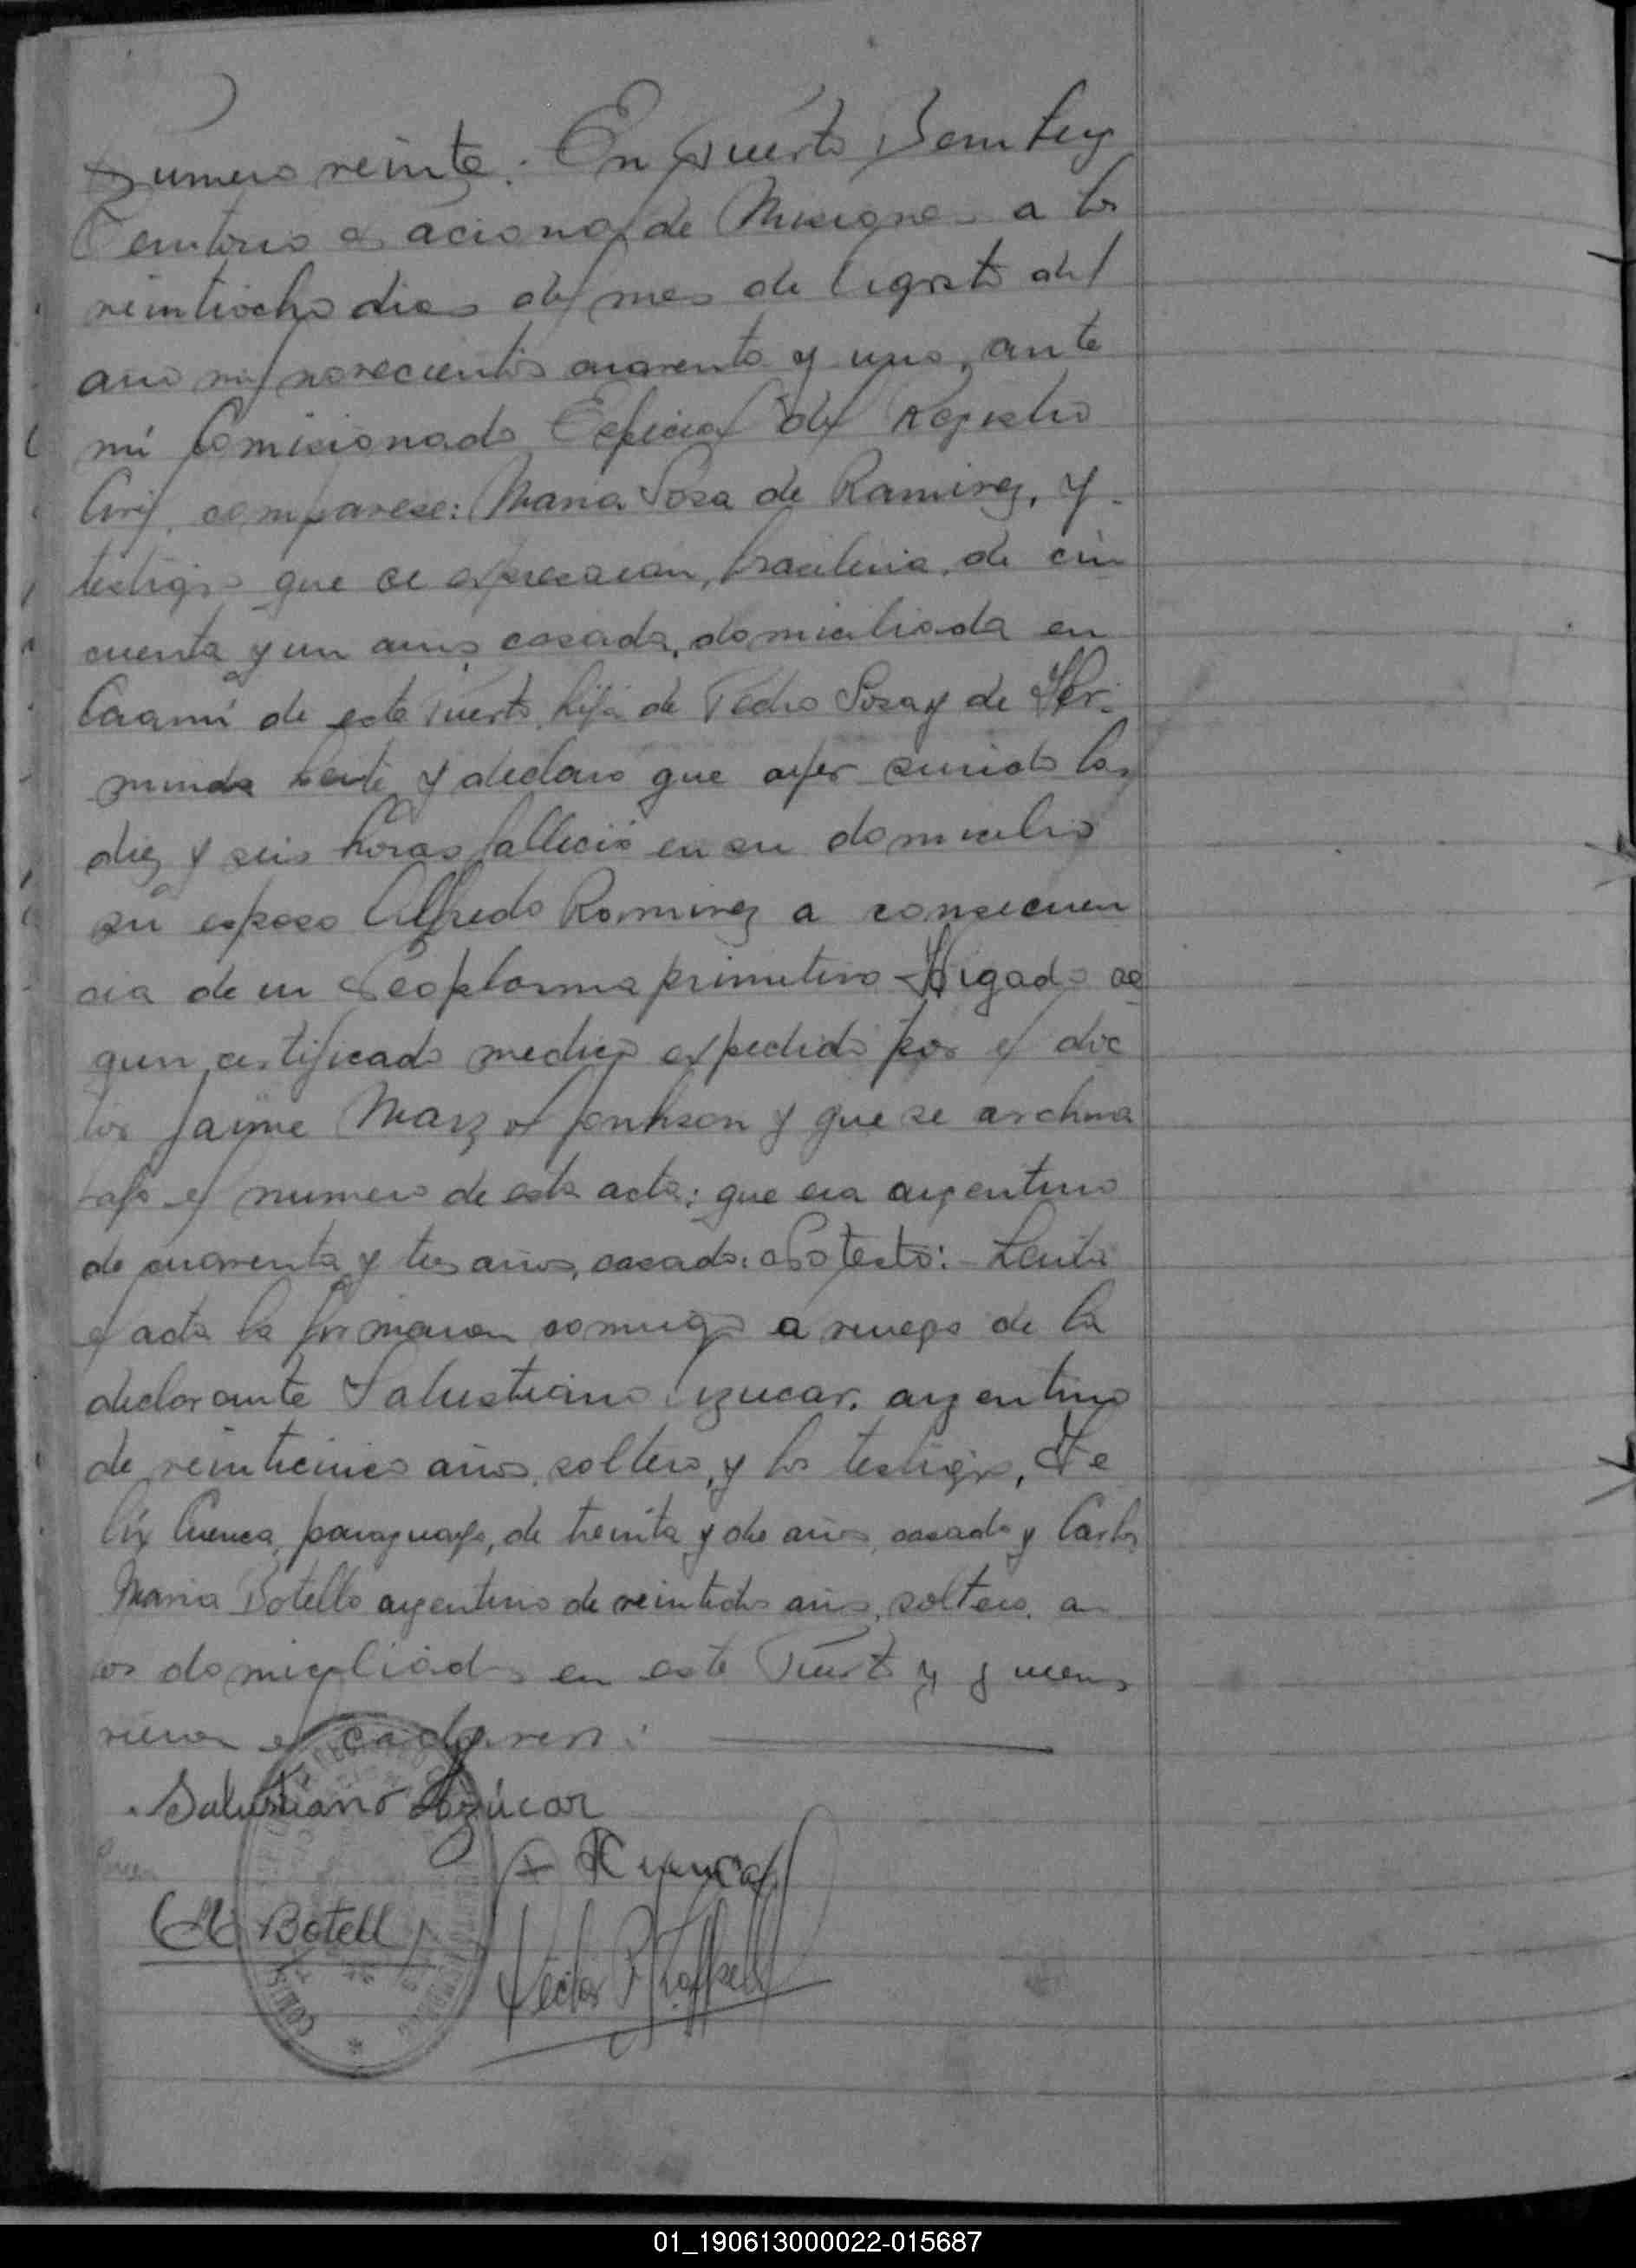 Numero veinte: En Puerto Bemberg
Territorio Nacional de Misiones a los
veintiocho dias del mes de Agosto del
año mil novecientos cuarenta y uno, ante
mi Comisionado Especial del Registro
Civil, comparece: Maria Sosa de Ramirez, y
testigos que se expresaran, brasileña, de cin
cuenta y un años, casada, domiciliada en
Caamí de este Puerto, hija de Pedro Sosa y de Her
minda y declaro que ayer siendo las
diez y seis horas falleció en su domicilio
su esposo Alfredo Ramirez a consecuen
cia de un Neoplasma primitivo Higado se
gun certificado medico expedido por el doc
tor Jaime Jonhson y que se archiva
bajo el numero de esta acta: que era argentino
de cuarenta y tres años, casado: No testo: Leida
el acta la firmaron conmigo a ruego de la
declarante Salustiano Azucar, argentino
de veinticinco años, soltero, y los testigos, Fe
lix Cuenca, paraguayo, de treinta y dos años, casado y Carlos
Maria Botello argentino de veintidos años, soltero, am
os domiciliados en este Puerto y quienes
vieron el cadaver:
Salustiano Azúcar
F Cuenca
CM Botell
Hector
01_190613000022-015687